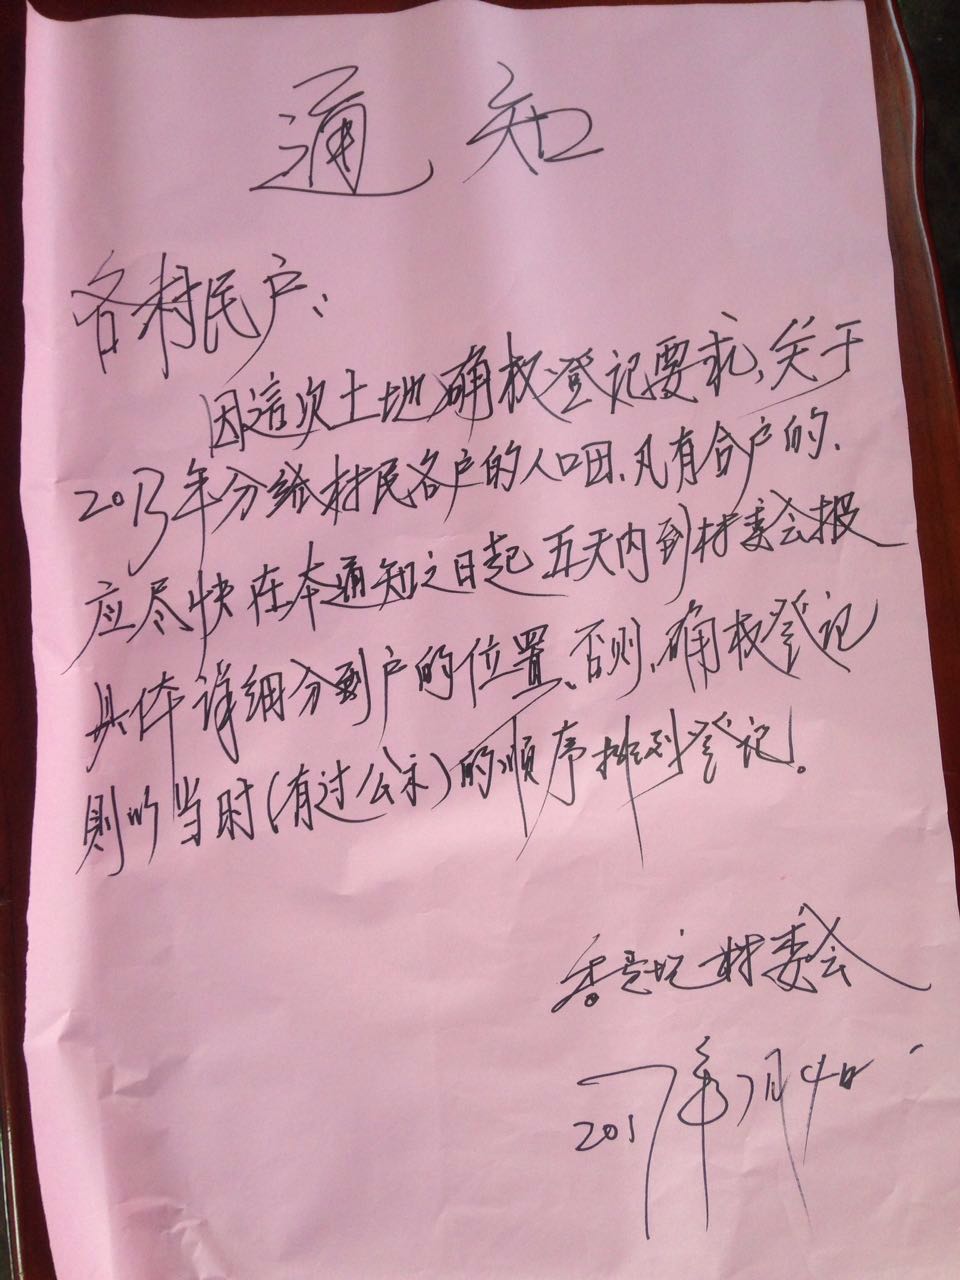 通知
各村民户：
因這次土地确权登记要求，关于
2013年分给村民各户的人口田、凡有合户的、
应尽快在本通知之日起五天内到村委会报
具体详细分到户的位置、否则、确权登记
则以当时（有过公示）的顺序排列登记。
村委会
2017年7月4日